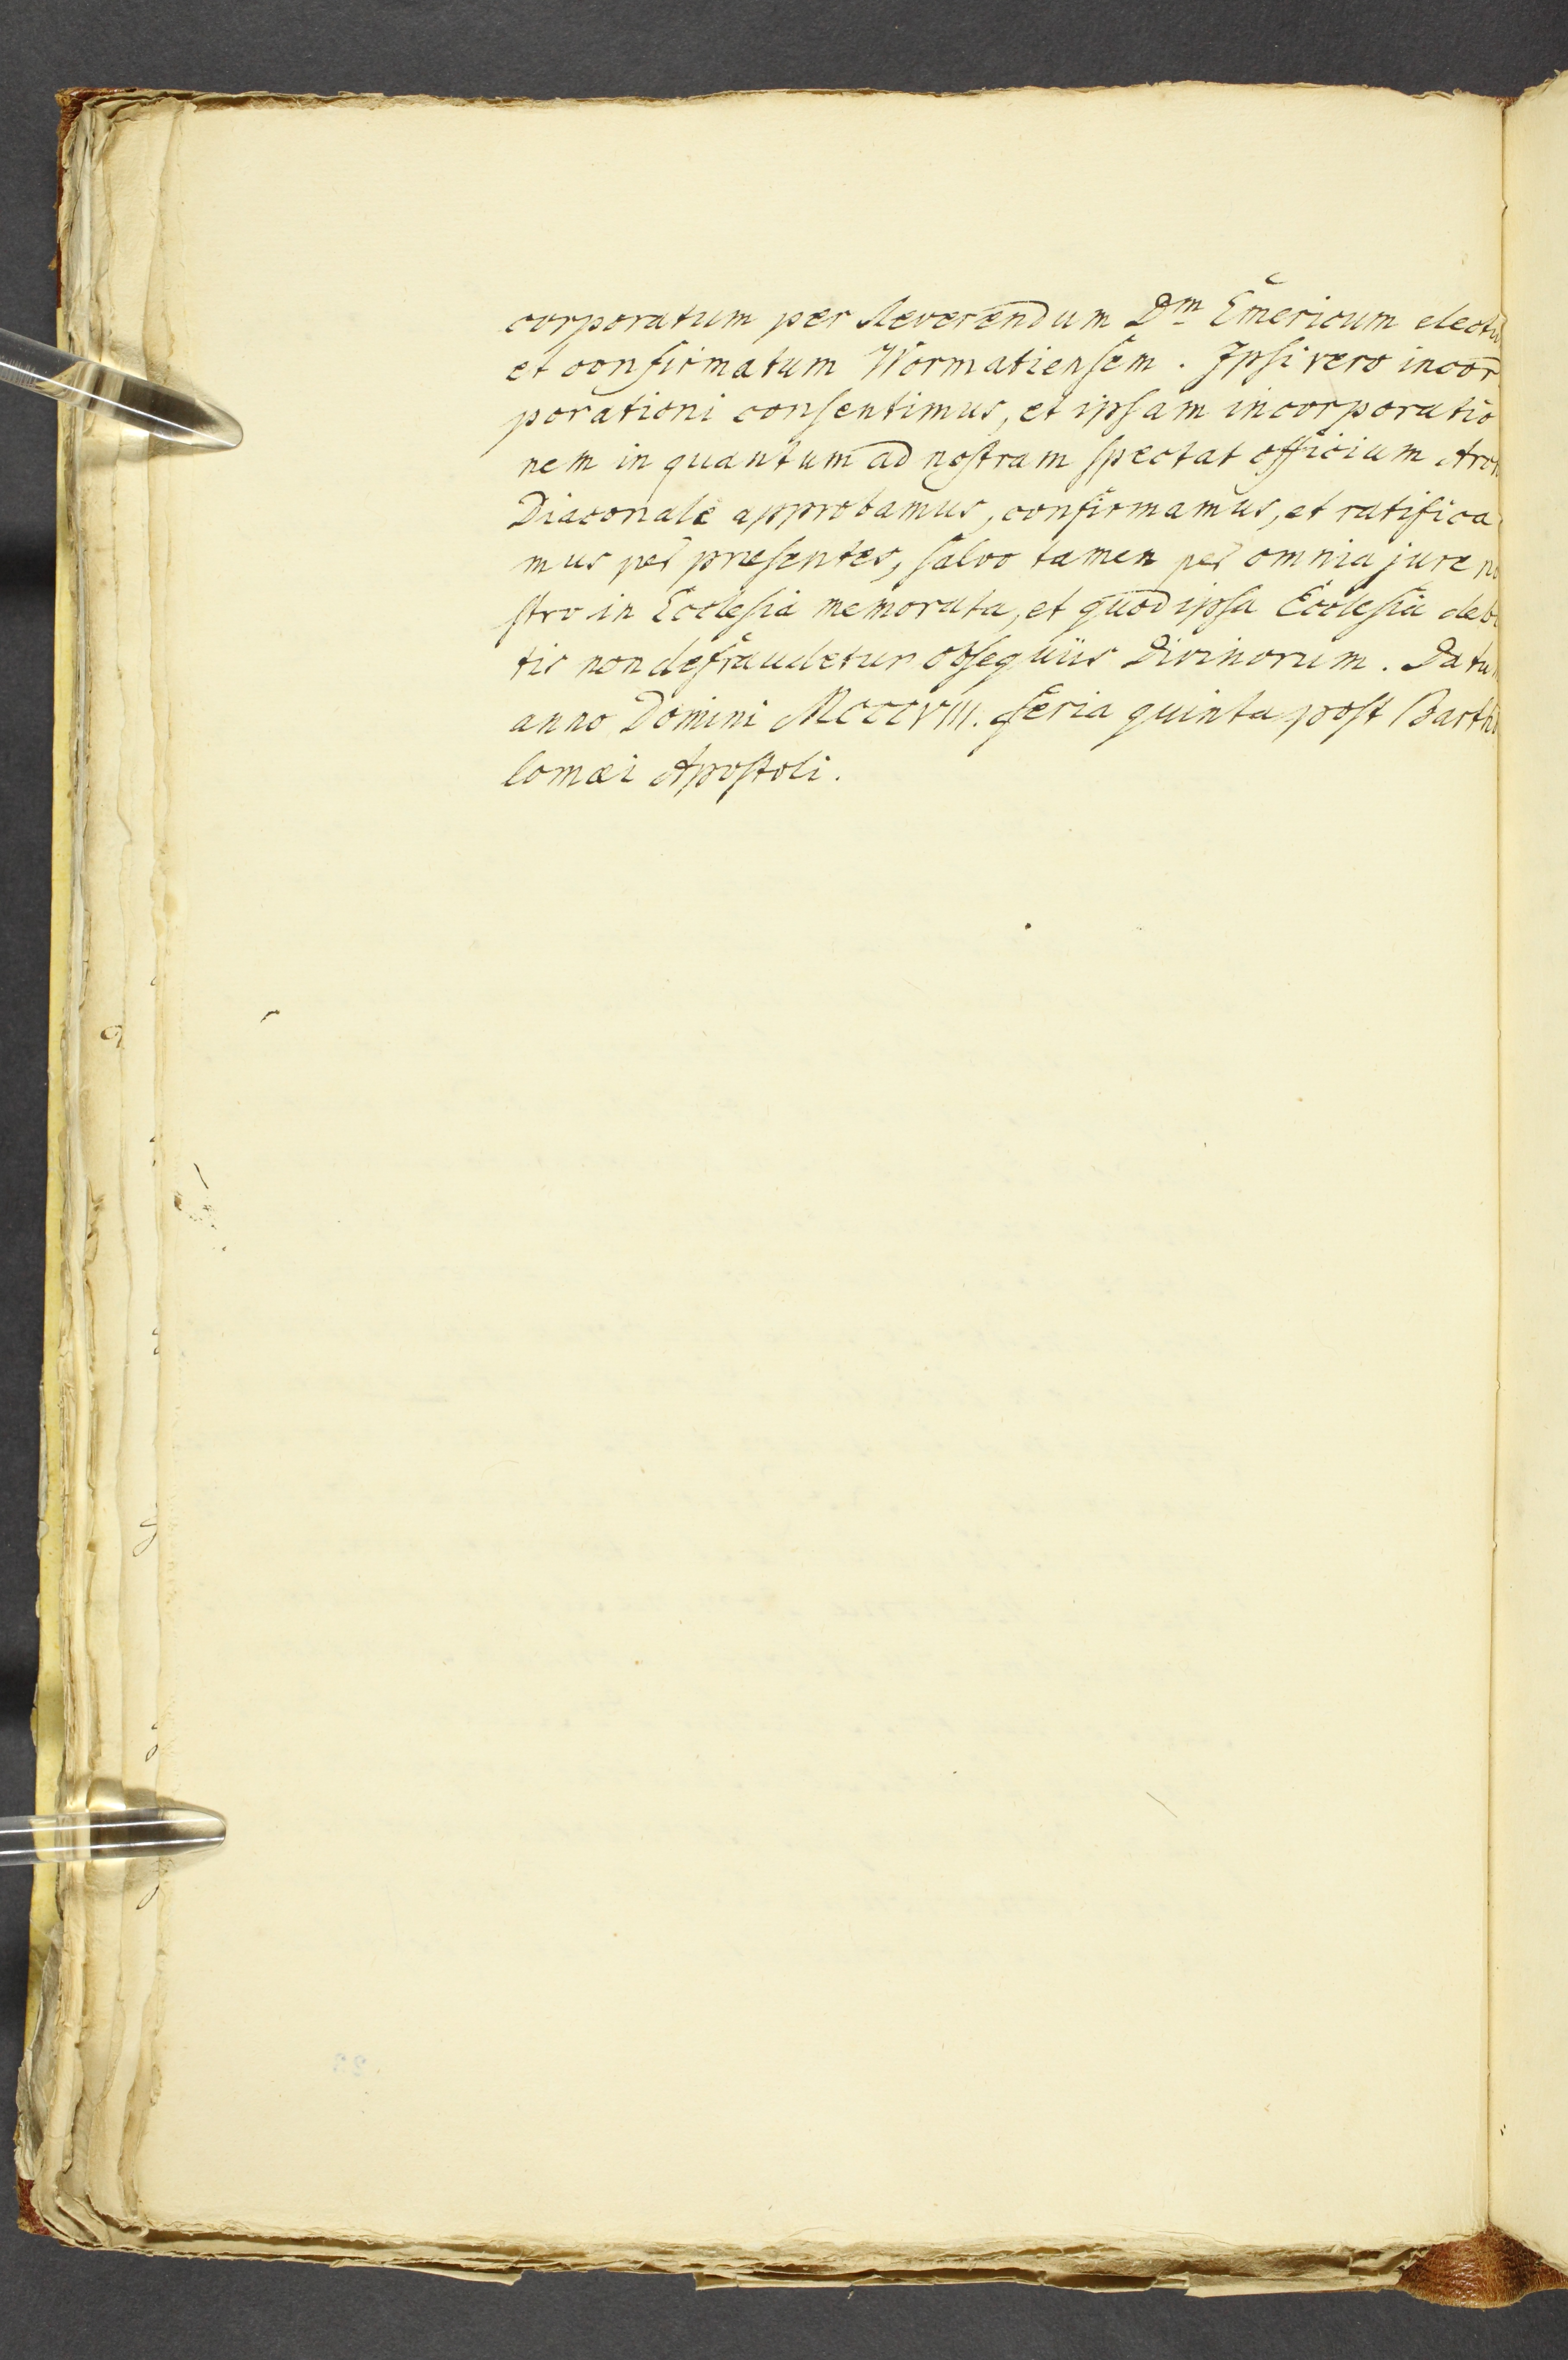 corporatum per Reverendum Dm Emericum electu
et confirmatum Wormatiensem. Ipsi vero incor
porationi consentimus, et ipsam incorporatio
nem in quantum ad nostram spectat officium Arch
Diaconale approbamus, confirmamus, et ratifica
mus per præsentes, salvo tamen per omnia jure no
stro in Ecclesia memorata, et quod ipsa Ecclesia debi
tis non defraudetur obsequiis Divinorum. Datu
anno Domini MCCCVIII. feria quinta post Bartho
lomæi Apostoli.